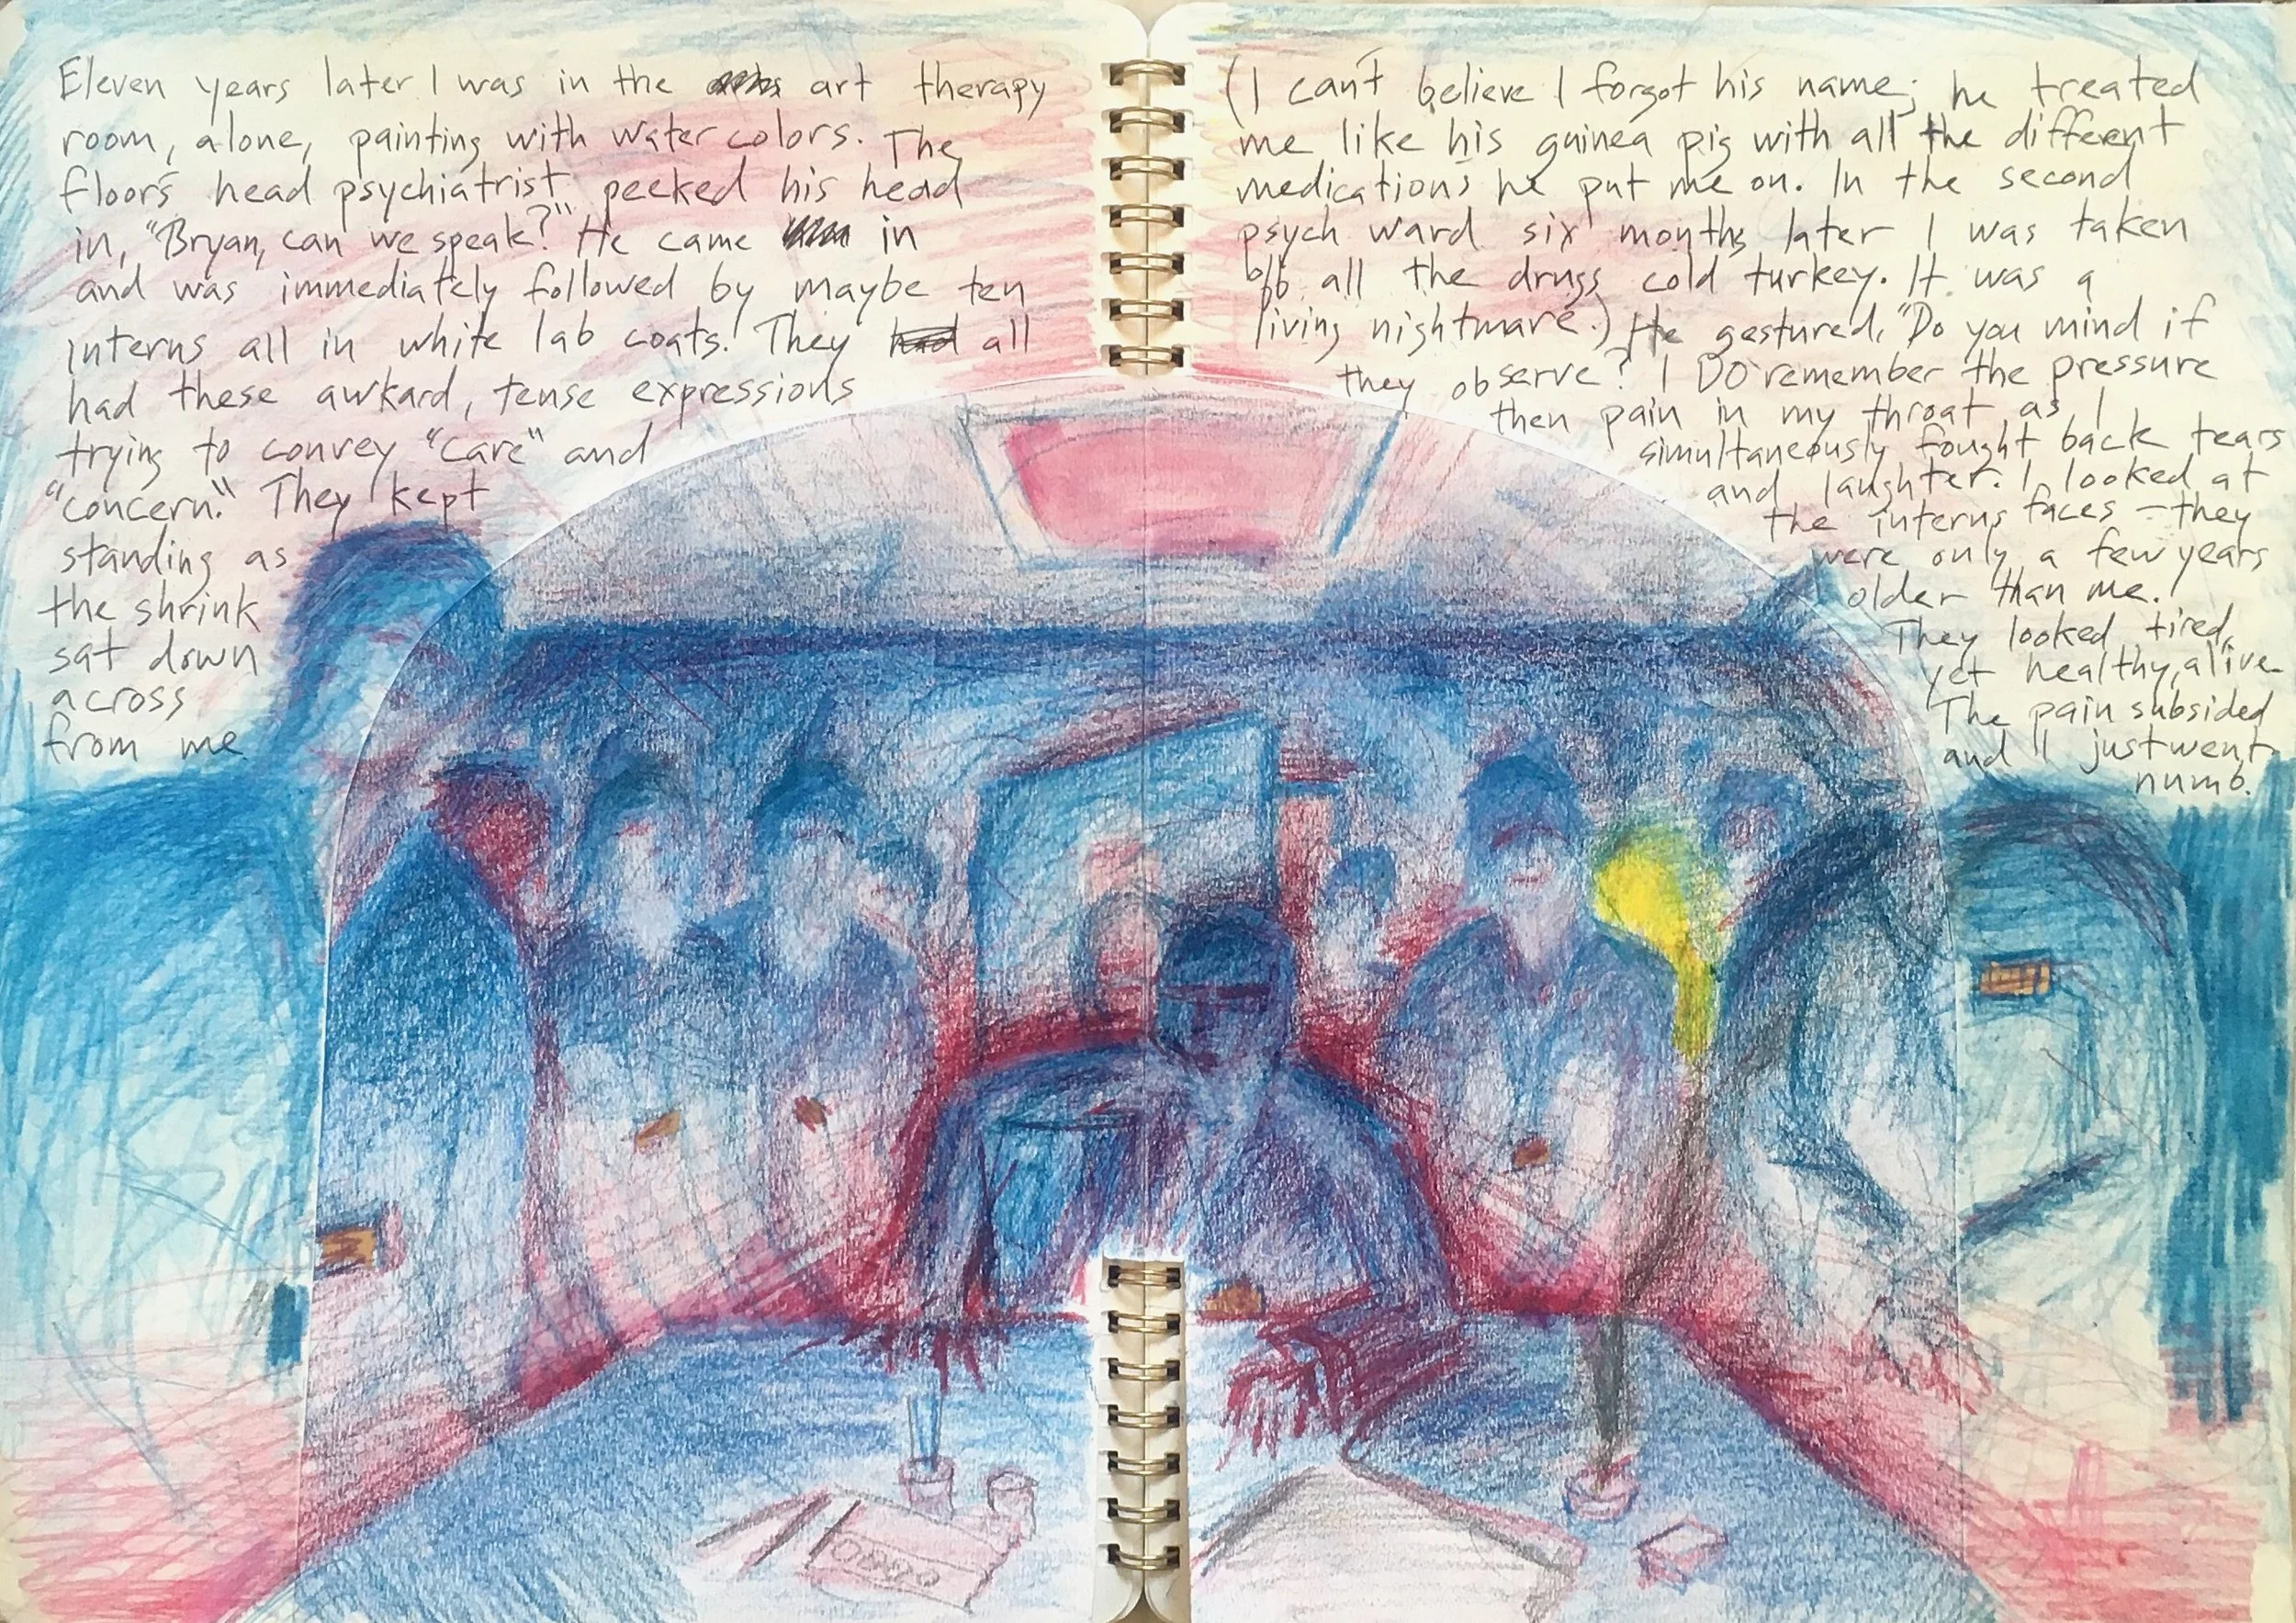 Eleven years later I was in the art therapy
room, alone, painting with water colors. The
floors head psychiatrist peeked his head
in, "Bryan, can we speak?" He came in
and was immediately followed by maybe ten
interns all in white lab coats. They all
had these awkard, tense expressions
trying to convey "care" and
"concern." They kept
standing as
the shrink
sat down
across
from me
(I can't believe I forgot his name; he treated
me like his guinea pig with all the different
medications he put me on. In the second
psych ward six months later I was taken
off all the drugs cold turkey. It was a
living nightmare.) He gestured, "Do you mind if
they observe? I DO remember the pressure
then pain in my throat as I
simultaneously fought back tears
and laughter. I looked at
the interns faces – they
were only a few years
older than me.
They looked tired,
yet healthy, alive.
The pain subsided
and I just went
numb.